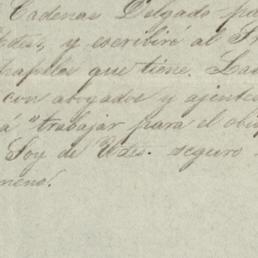 Cadenas Delgado pa
y escribiré al
que tiene.
con abogados y ajentes
"trabajar para el obis
Soy de Uds. seguro